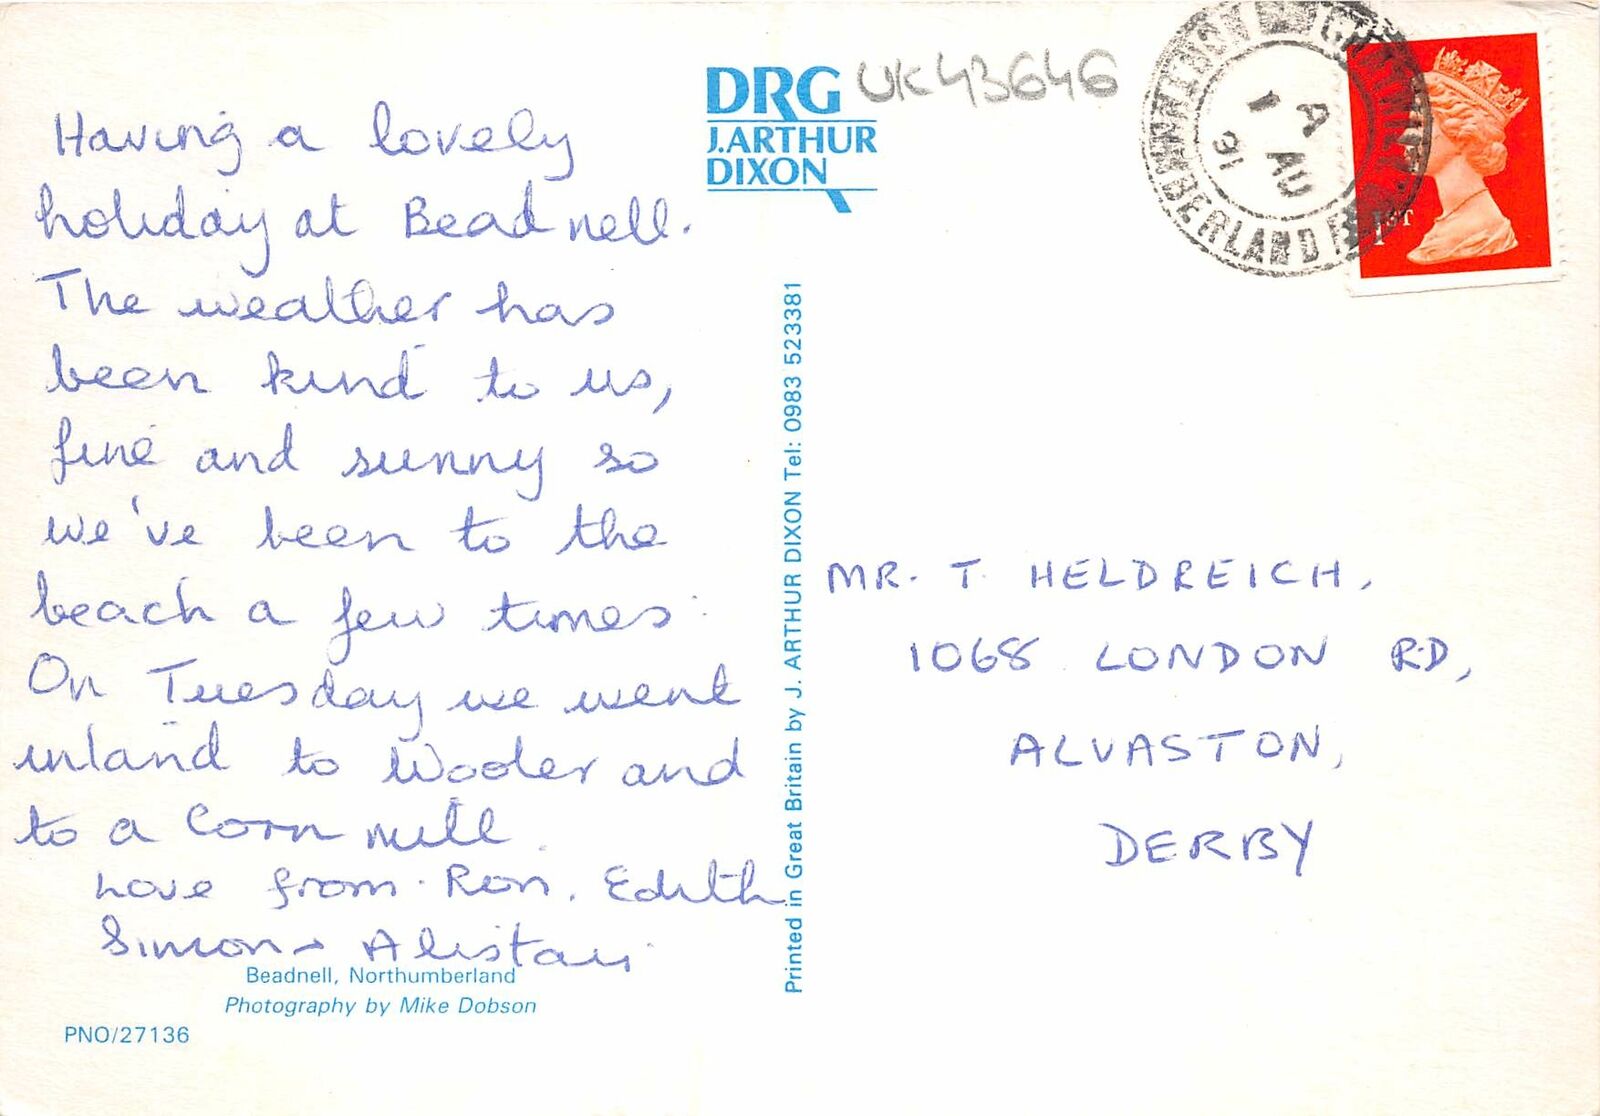 Having a lovely
holiday at Beadnell.
The weather has
been kind to us,
fine and sunny so
we've been to the
beach a few times.
On Tuesday we went
inland to Wooler and
to a Corn mill.
Love from Ron, Edith
Simon + Alistair
Beadnell, Northumberland
Photography by Mike Dobson
PNO/27136
DRG
J.ARTHUR
DIXON
Printed in Great Britain by J. ARTHUR DIXON Tel: 0983 523381
UK43646
A
1 AU
91
1ST
MR. T. HELDREICH,
1068 LONDON RD,
ALVASTON,
DERBY